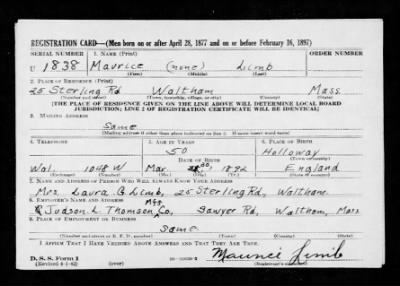 REGISTRATION CARD—(Men born on or after April 28, 1877 and on or before February 16, 1897)
SERIAL NUMBER 1. NAME (Print) ORDER NUMBER
U 1838 Maurice (none) Limb
(First) (Middle) (Last)
2. PLACE OF RESIDENCE (Print)
25 Sterling Rd Waltham Mass
(Number and street) (Town, township, village, or city) (County) (State)
[THE PLACE OF RESIDENCE GIVEN ON THE LINE ABOVE WILL DETERMINE LOCAL BOARD
JURISDICTION; LINE 2 OF REGISTRATION CERTIFICATE WILL BE IDENTICAL]
3. MAILING ADDRESS
Same
[Mailing address if other than place indicated on line 2. If same insert word same]
4. TELEPHONE 5. AGE IN YEARS 6. PLACE OF BIRTH
50 Holloway
DATE OF BIRTH (Town or county)
Wal. 1048 W Mar. 1892 England
(Exchange) (Number) (Mo.) (Day) (Yr.) (State or country)
7. NAME AND ADDRESS OF PERSON WHO WILL ALWAYS KNOW YOUR ADDRESS
Mrs. Laura G Limb, 25 Sterling Rd, Waltham
8. EMPLOYER'S NAME AND ADDRESS
Judson L Thomson Mfg Co, Sawyer Rd, Waltham, Mass
9. PLACE OF EMPLOYMENT OR BUSINESS
same
(Number and street or R. F. D. number) (Town) (County) (State)
I AFFIRM THAT I HAVE VERIFIED ABOVE ANSWERS AND THAT THEY ARE TRUE.
D. S. S. Form 1
(Revised 4-1-42) (over) Maurice Limb
(Registrant's signature)